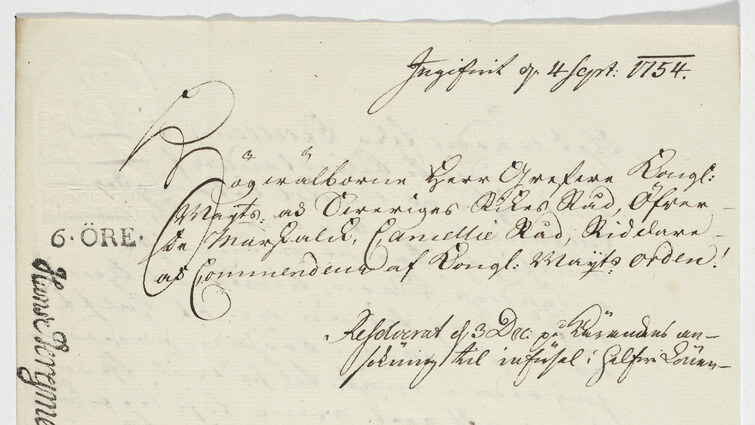 Ingifvit d. 4 Sept: 1754.
Högwälborne Herr Grefwe Kongl:
Mayts: as Sweriges Rikes Råd, Öfwer-
ste Marskalck, Cancellie Råd, Riddare
as Commendeur af Kongl: Mayts: orden!
6. ÖRE.
Resolverat d. 3 Dec. på Kärandens an-
sökning til